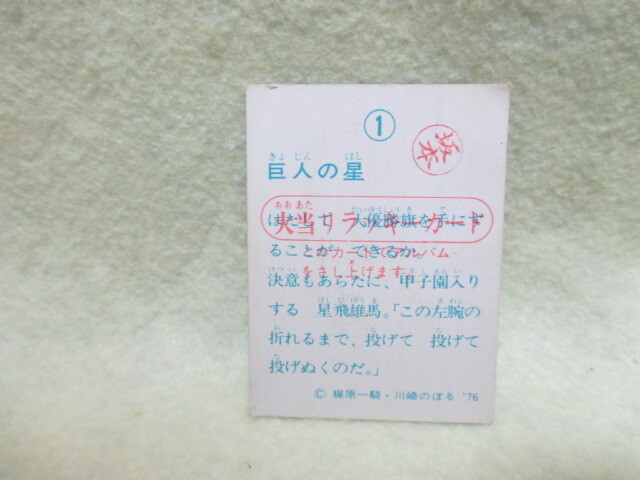 ①
坂本
きょ じん ほし
巨人の星
おお あた
大当りラッキーカード
はたして 大優勝旗を手にす
ることが できるか。
カードでアルバム
をさし上げます
決意もあらたに、甲子園入り
する 星飛雄馬。「この左腕の
折れるまで、投げて 投げて
投げぬくのだ。」
© 梶原一騎・川崎のぼる '76